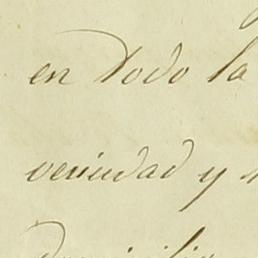 en todo la
vecindad y